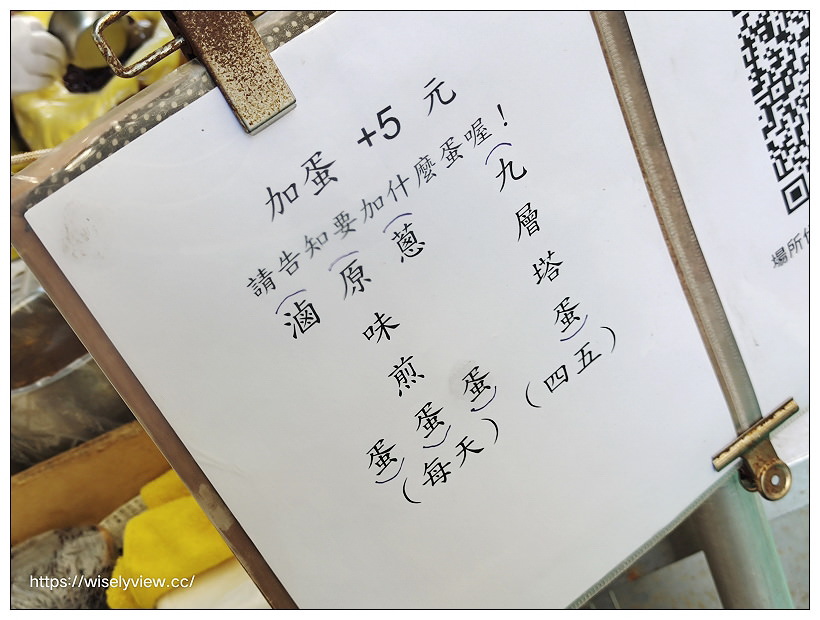 加蛋 +5 元
請告知要加什麼蛋喔！
(滷蛋)
(原味煎蛋)
(蔥蛋)
(每天)
(九層塔蛋)
(四五)
場所
https://wiselyview.cc/